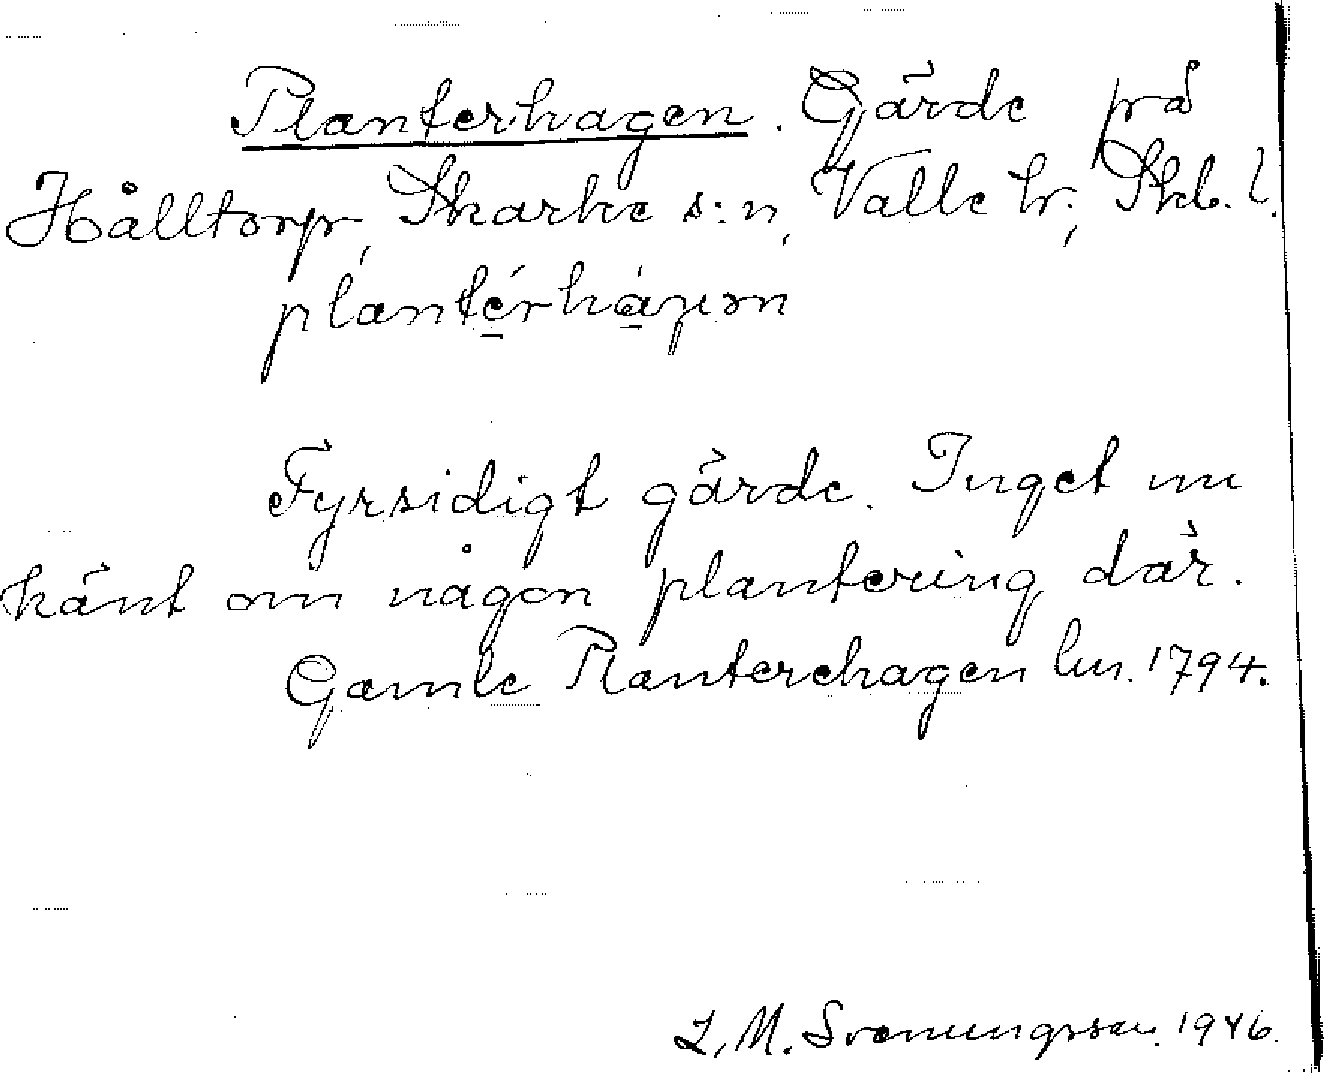 Planterhagen. Gärde på
Hålltorp, Skarke s:n, Valle hr, Skb. l.
plantérhágen
Fyrsidigt gärde. Inget nu
känt om någon plantering där.
Gamle Planterehagen lm. 1794.
L. M. Svenungsson 1946.